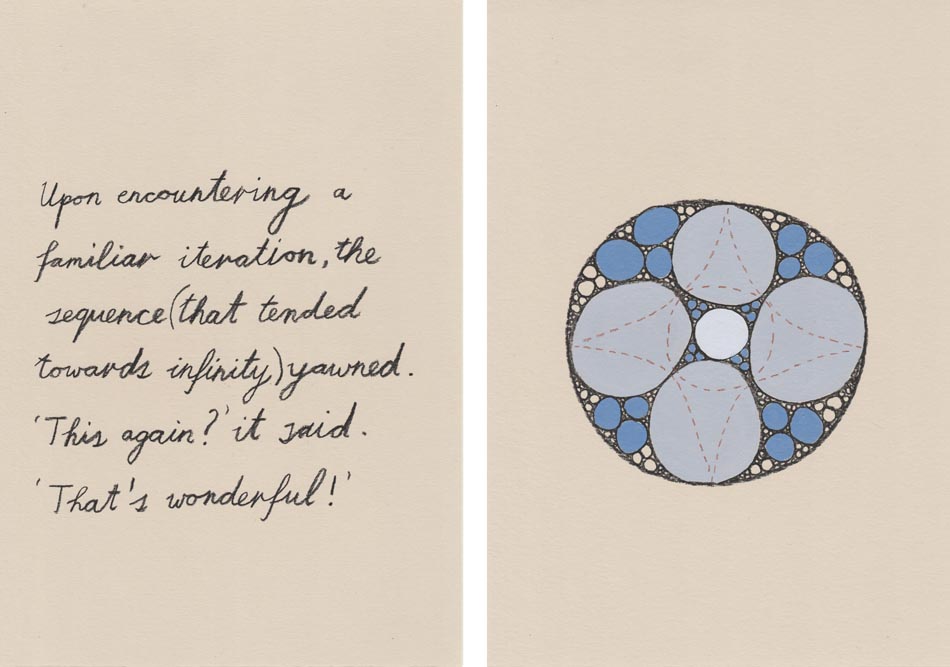 Upon encountering a
familiar iteration, the
sequence (that tended
towards infinity) yawned.
'This again?' it said.
'That's wonderful!'